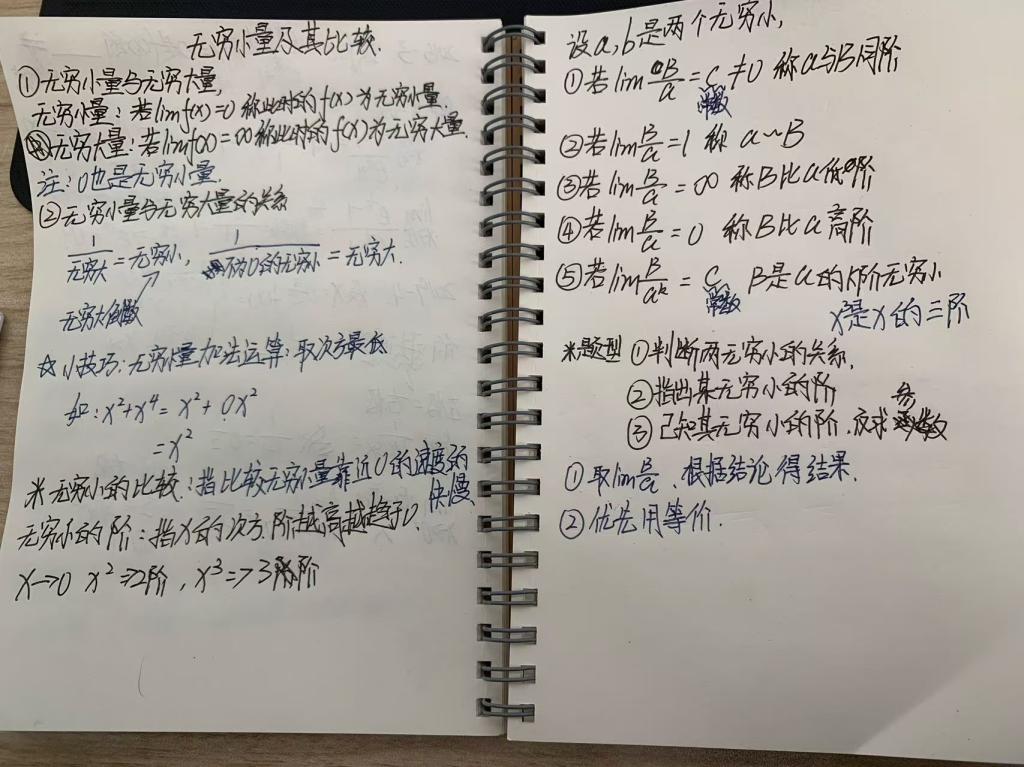 无穷小量及其比较.
①无穷小量与无穷大量,
无穷小量：若lim f(x)=0 称此时的f(x)为无穷小量.
无穷大量：若lim f(x)=∞称此时的f(x)为无穷大量.
注：0也是无穷小量.
②无穷小量与无穷大量的关系
1/无穷大=无穷小, 1/不为0的无穷小=无穷大.
无穷大倒数
☆小技巧：无穷小量加法运算：取次方最低
如：x²+x⁴=x²+0x²
=x²
米无穷小的比较：指比较无穷小量靠近0的速度的
快慢
无穷小的阶：指x的次方.阶越高越趋于0.
x→0 x²⇒2阶, x³=>3阶
设a,b是两个无穷小,
①若lim B/a=C≠0 称a与B同阶
常数
②若lim B/a=1 称 a~B
③若lim B/a=∞ 称B比a低阶
④若lim B/a=0 称B比a高阶
⑤若lim B/aᵏ=C, B是a的k阶无穷小
常数
x³是x的三阶
米题型 ①判断两无穷小的关系,
②指出某无穷小的阶
③已知某无穷小的阶.反求参数
①取lim B/a.根据结论得结果.
②优先用等价.